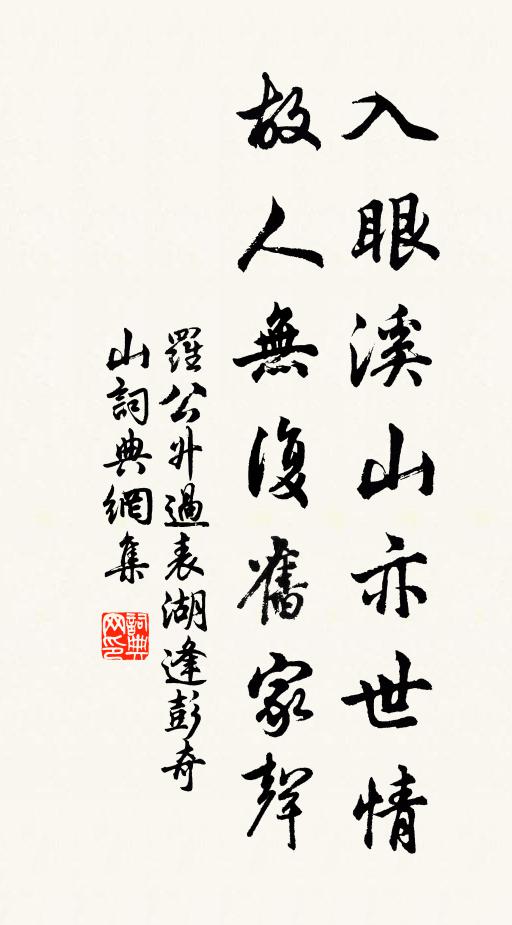 入眼溪山亦世情
故人無復舊家聲
羅公升過表湖逢彭奇
山詞典網集
詞典网印